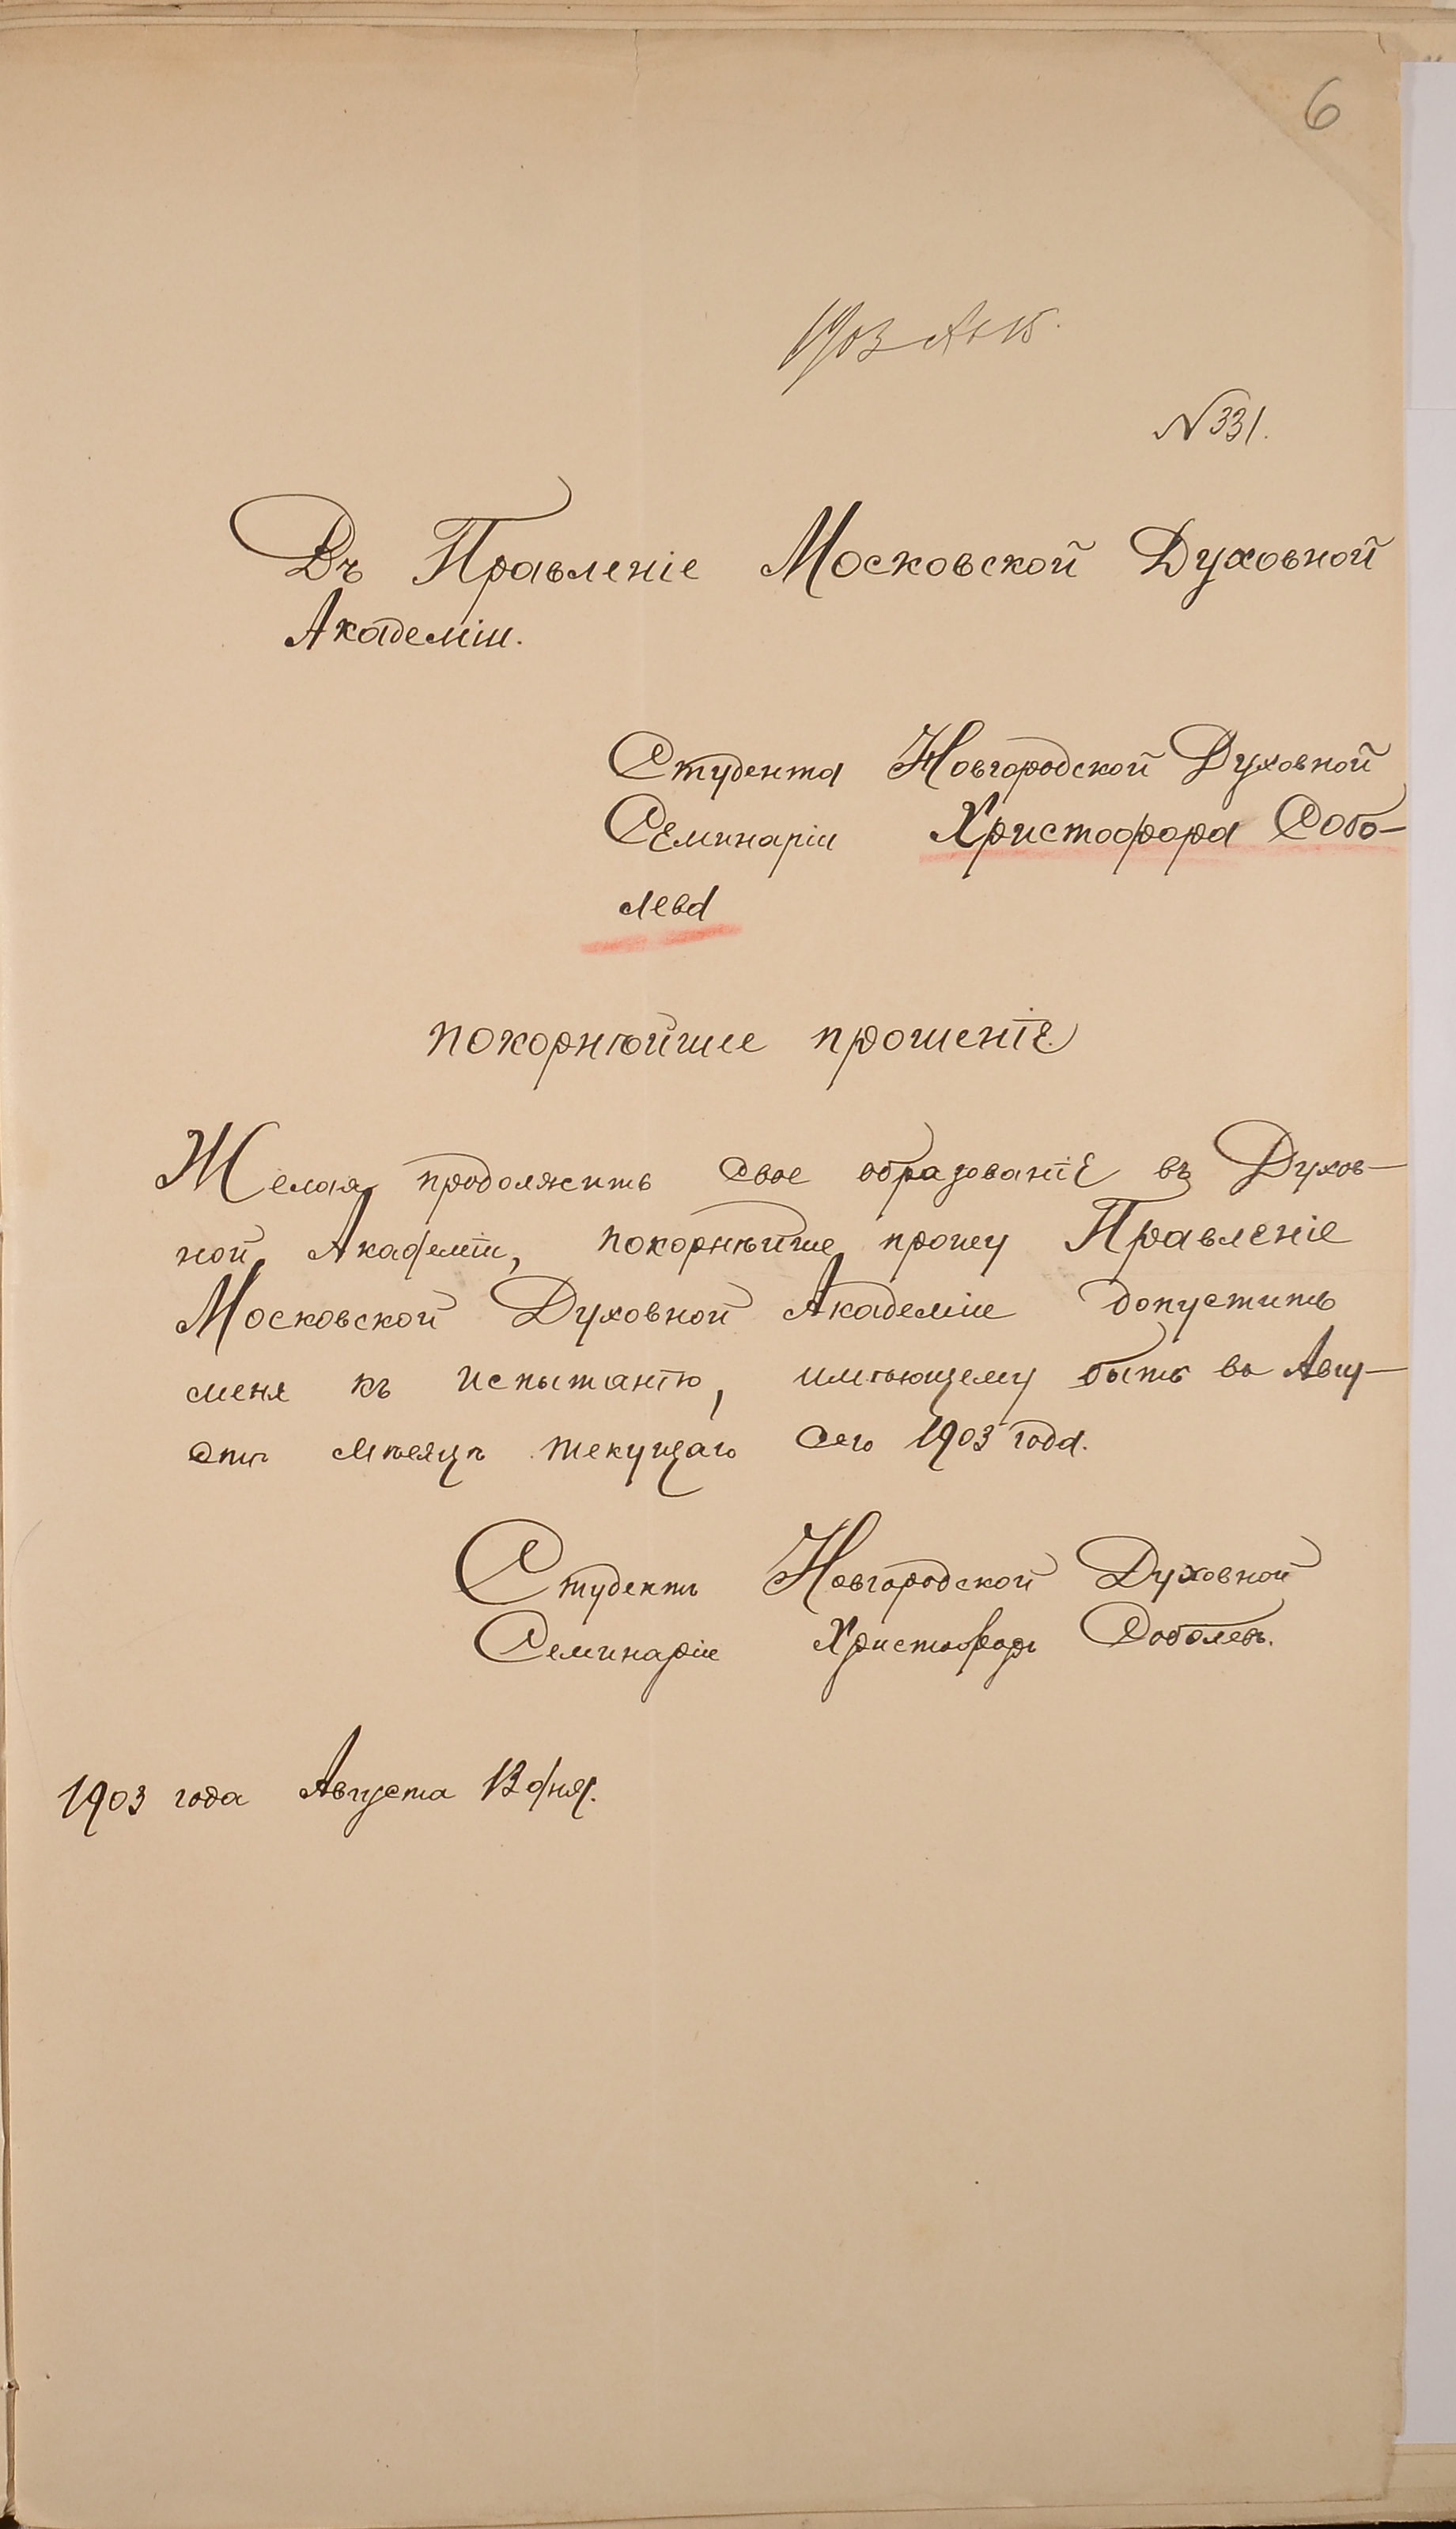 6
1903 Ав 15.
N 331.
Въ Правленіе Московской Духовной
Академіи.
Студента Новгородской Духовной
Семинаріи Христофора Собо-
лева
покорнѣйшее прошеніе.
Желая продолжить свое образованіе въ Духов-
ной Академіи, покорнѣйше прошу Правленіе
Московской Духовной Академіи допустить
меня къ испытанію, имѣющему быть въ Авгу-
стѣ мѣсяцѣ текущаго сего 1903 года.
Студентъ Новгородской Духовной
Семинаріи Христофоръ Соболевъ.
1903 года Августа 13 дня.